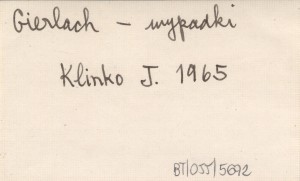 Gierlach – wypadki
Klinko J. 1965
BT/055/5692